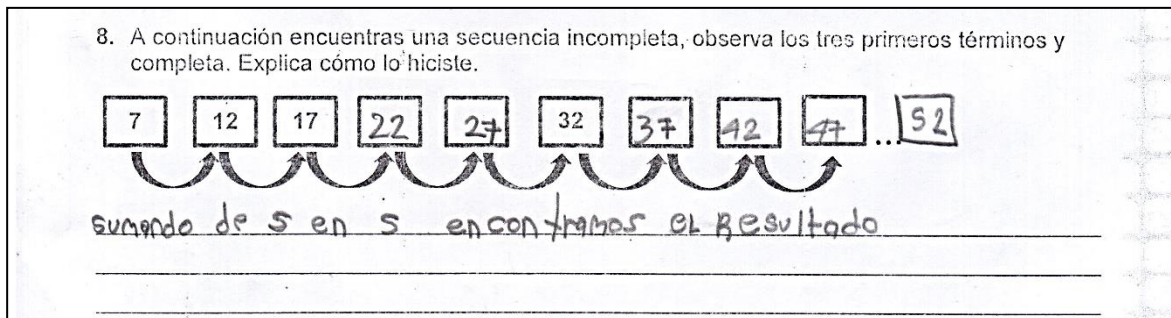 8. A continuación encuentras una secuencia incompleta, observa los tres primeros términos y
completa. Explica cómo lo hiciste.
7 12 17 22 27 32 37 42 47 ... 52
sumando de 5 en 5 encontramos el Resultado